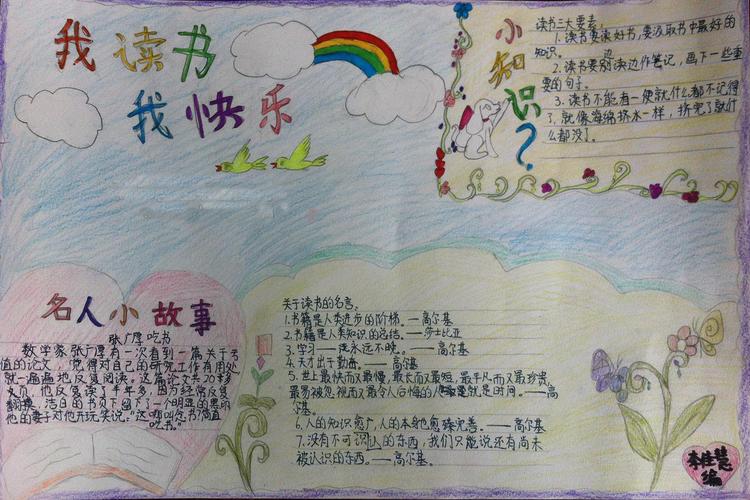 我读书
我快乐
小知识?
读书三大要素:
1.读书要读好书,要汲取书中最好的
知识。
2.读书要边读边作笔记,画下一些重
要的句子。
3.读书不能看一便就什么都不记得
了,就像海绵挤水一样,挤完了就什
么都没了。
名人小故事
张广厚吃书
数学家张广厚有一次看到一篇关于亏
值的论文,觉得对自己的研究工作有用处
就一遍遍地反复阅读。这篇论文共20多
页,他反反复复读了半年多,因为经常反复
翻摸,洁白的书页上留下了一个明显的黑印
他的妻子对他开玩笑说,"这哪叫念书?简直
吃书。"
关于读书的名言,
1.书籍是人类进步的阶梯。——高尔基
2.书籍是人类知识的总结。——莎士比亚
3.学习——是永远不晚。——高尔基
4.天才出于勤奋。——高尔基
5.世上最快而又最慢,最长而又最短,最平凡而又最珍贵,
最易被忽视而又最令人后悔的,就是时间。——高
尔基。
6.人的知识愈广,人的本身也愈臻完善。——高尔基
7.没有不可认识的东西,我们只能说还有尚未
被认识的东西。——高尔基。
慧
编